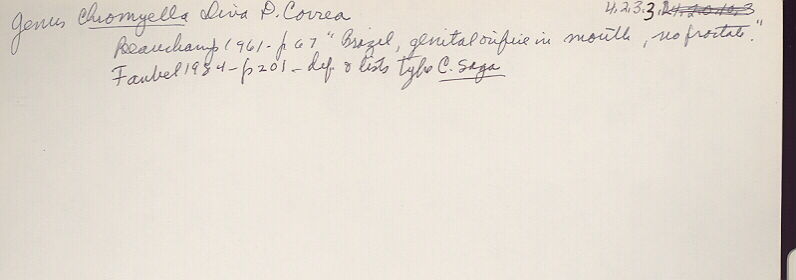 Genus Chromyella Diva D. Correa 4.2.3.3.
Beauchamp 1961 - p 67 "Brazil, genital orifice in mouth, no prostate."
Faubel 1984 - p 201 - def & lists type C. saga